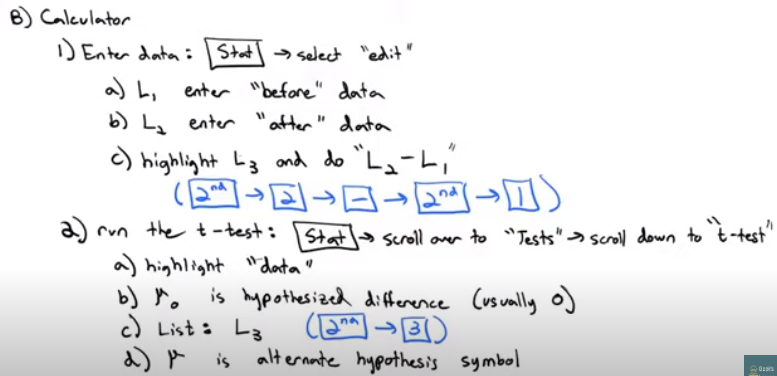 B) Calculator
1) Enter data: Stat → select "edit"
a) L₁ enter "before" data
b) L₂ enter "after" data
c) highlight L₃ and do "L₂-L₁"
(2nd → 2 → - → 2nd → 1)
2) run the t-test: Stat → scroll over to "Tests" → scroll down to "t-test"
a) highlight "data"
b) μ₀ is hypothesized difference (usually 0)
c) List: L₃ (2nd → 3)
d) μ is alternate hypothesis symbol